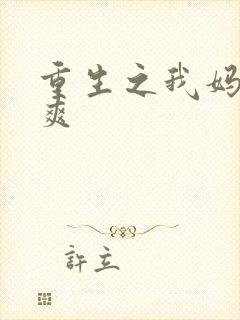 重生之我妈
爽
許立